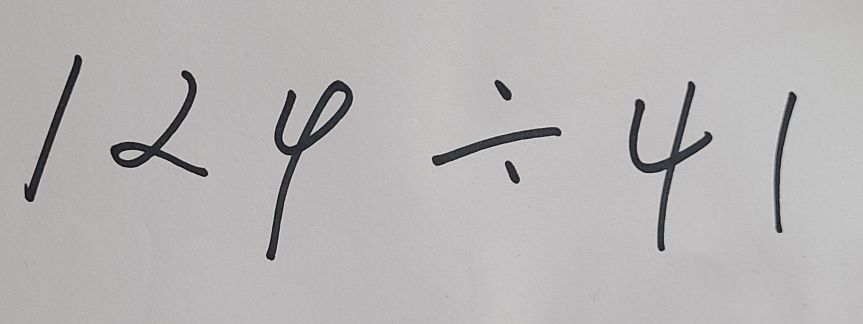 124 ÷ 41